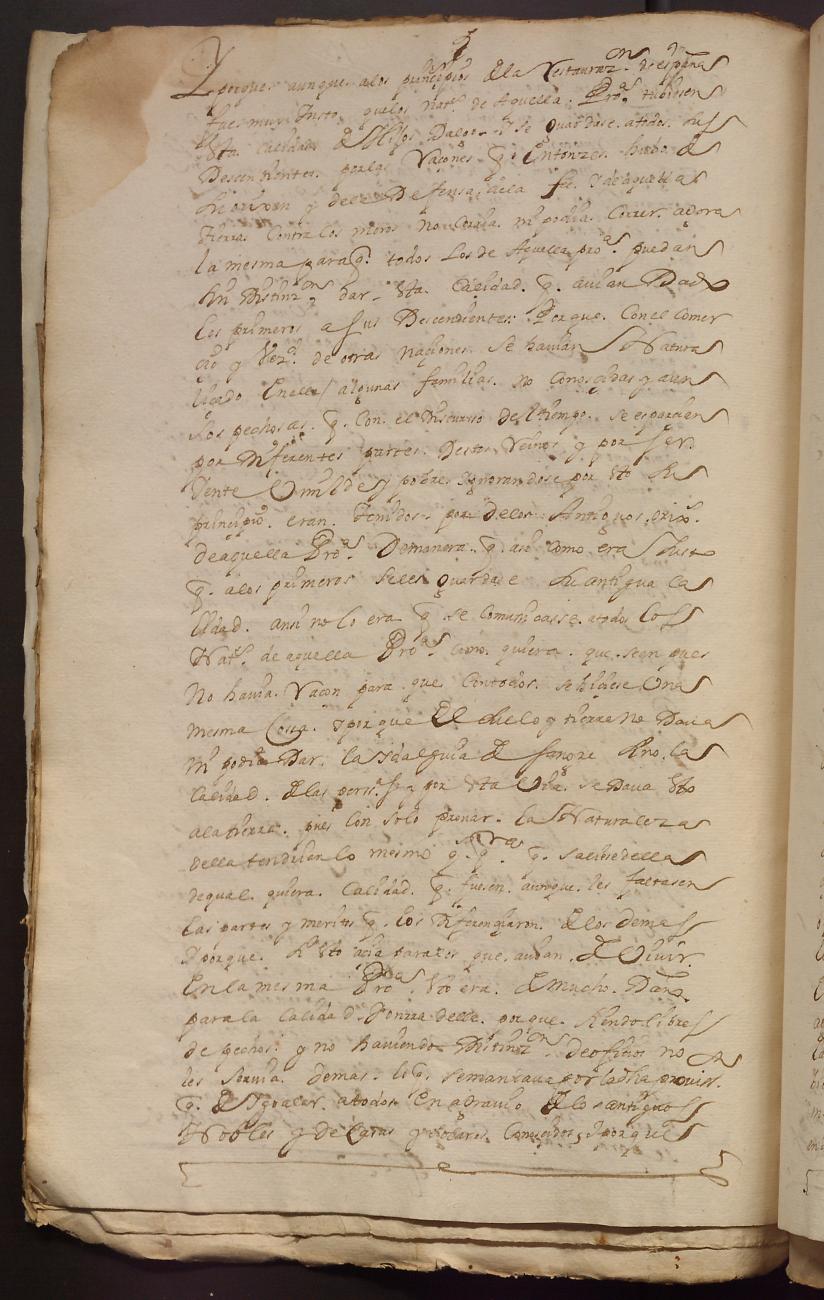 Y porque aunque alos principios de la Restauraz.on de españa
fue muy Justo quelos nat.s de Aquella Pro.a tubiesen
esta calidad de Hijos Dalgo y se Guardase atodos sus
Descendientes por las Raçones q. Entonzes hubo de
su orixen y dela Defensa dela fee y de aquella
tierra Contra los moros no Corria ni podia Correr aora
la mesma para q. todos Los de Aquella pro.a puedan
sin Distinz.on dar esta Calidad q. avian Dado
los primeros a sus Descendientes Porque Con el comer
cio y Vez.d de otras naçiones se havian Natura
liçado En ella algunas familias no Conosçidas y aun
los pechosas q. Con el Discurso del tiempo se esparcien
por Diferentes partes Destos Reinos y por ser
Jente Omilde y pobre Ignorandose por esto su
principio eran tenidos por delos Antiguos orix.
de aquella Pro.a De manera q. asi como era Justo
q. alos primeros seles Guardase su antigua ca
lidad ansi no lo era q. se Comunicasse atodos los
Nat.s de aquella Pro.a Como quiera que sean pues
No havia Raçon para que Contodos se hiçiese Una
mesma Cossa y porque El çielo y tierra no Dava
ni podia Dar la ydalguia de sangre sino la
Calidad de las pers.as y por esta Via se Dava esto
ala tierra pues Con solo provar la Naturaleza
della tendrian lo mesmo q. saliese della
de qual quiera Calidad q. fuesen aunque les faltasen
las partes y meritos q. los Diferençiaron de los demas
Y porque si esto açia para los que avian de Vivir
En la mesma Pro.a esto era de mucho Daño
para la Calidad y onrra della porque siendo libres
de pechos y no haviendo Distinz.on de ofiçios no
les servia demas lo q. se mandava por la dha provis.
q. de Igualar atodos En agravio de los antiguos
Nobles y de Casas y solares Conoçidos Y porque